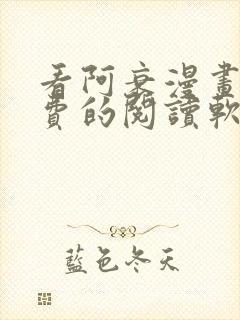 看阿衰漫畫
費的閱讀軟
藍色冬天